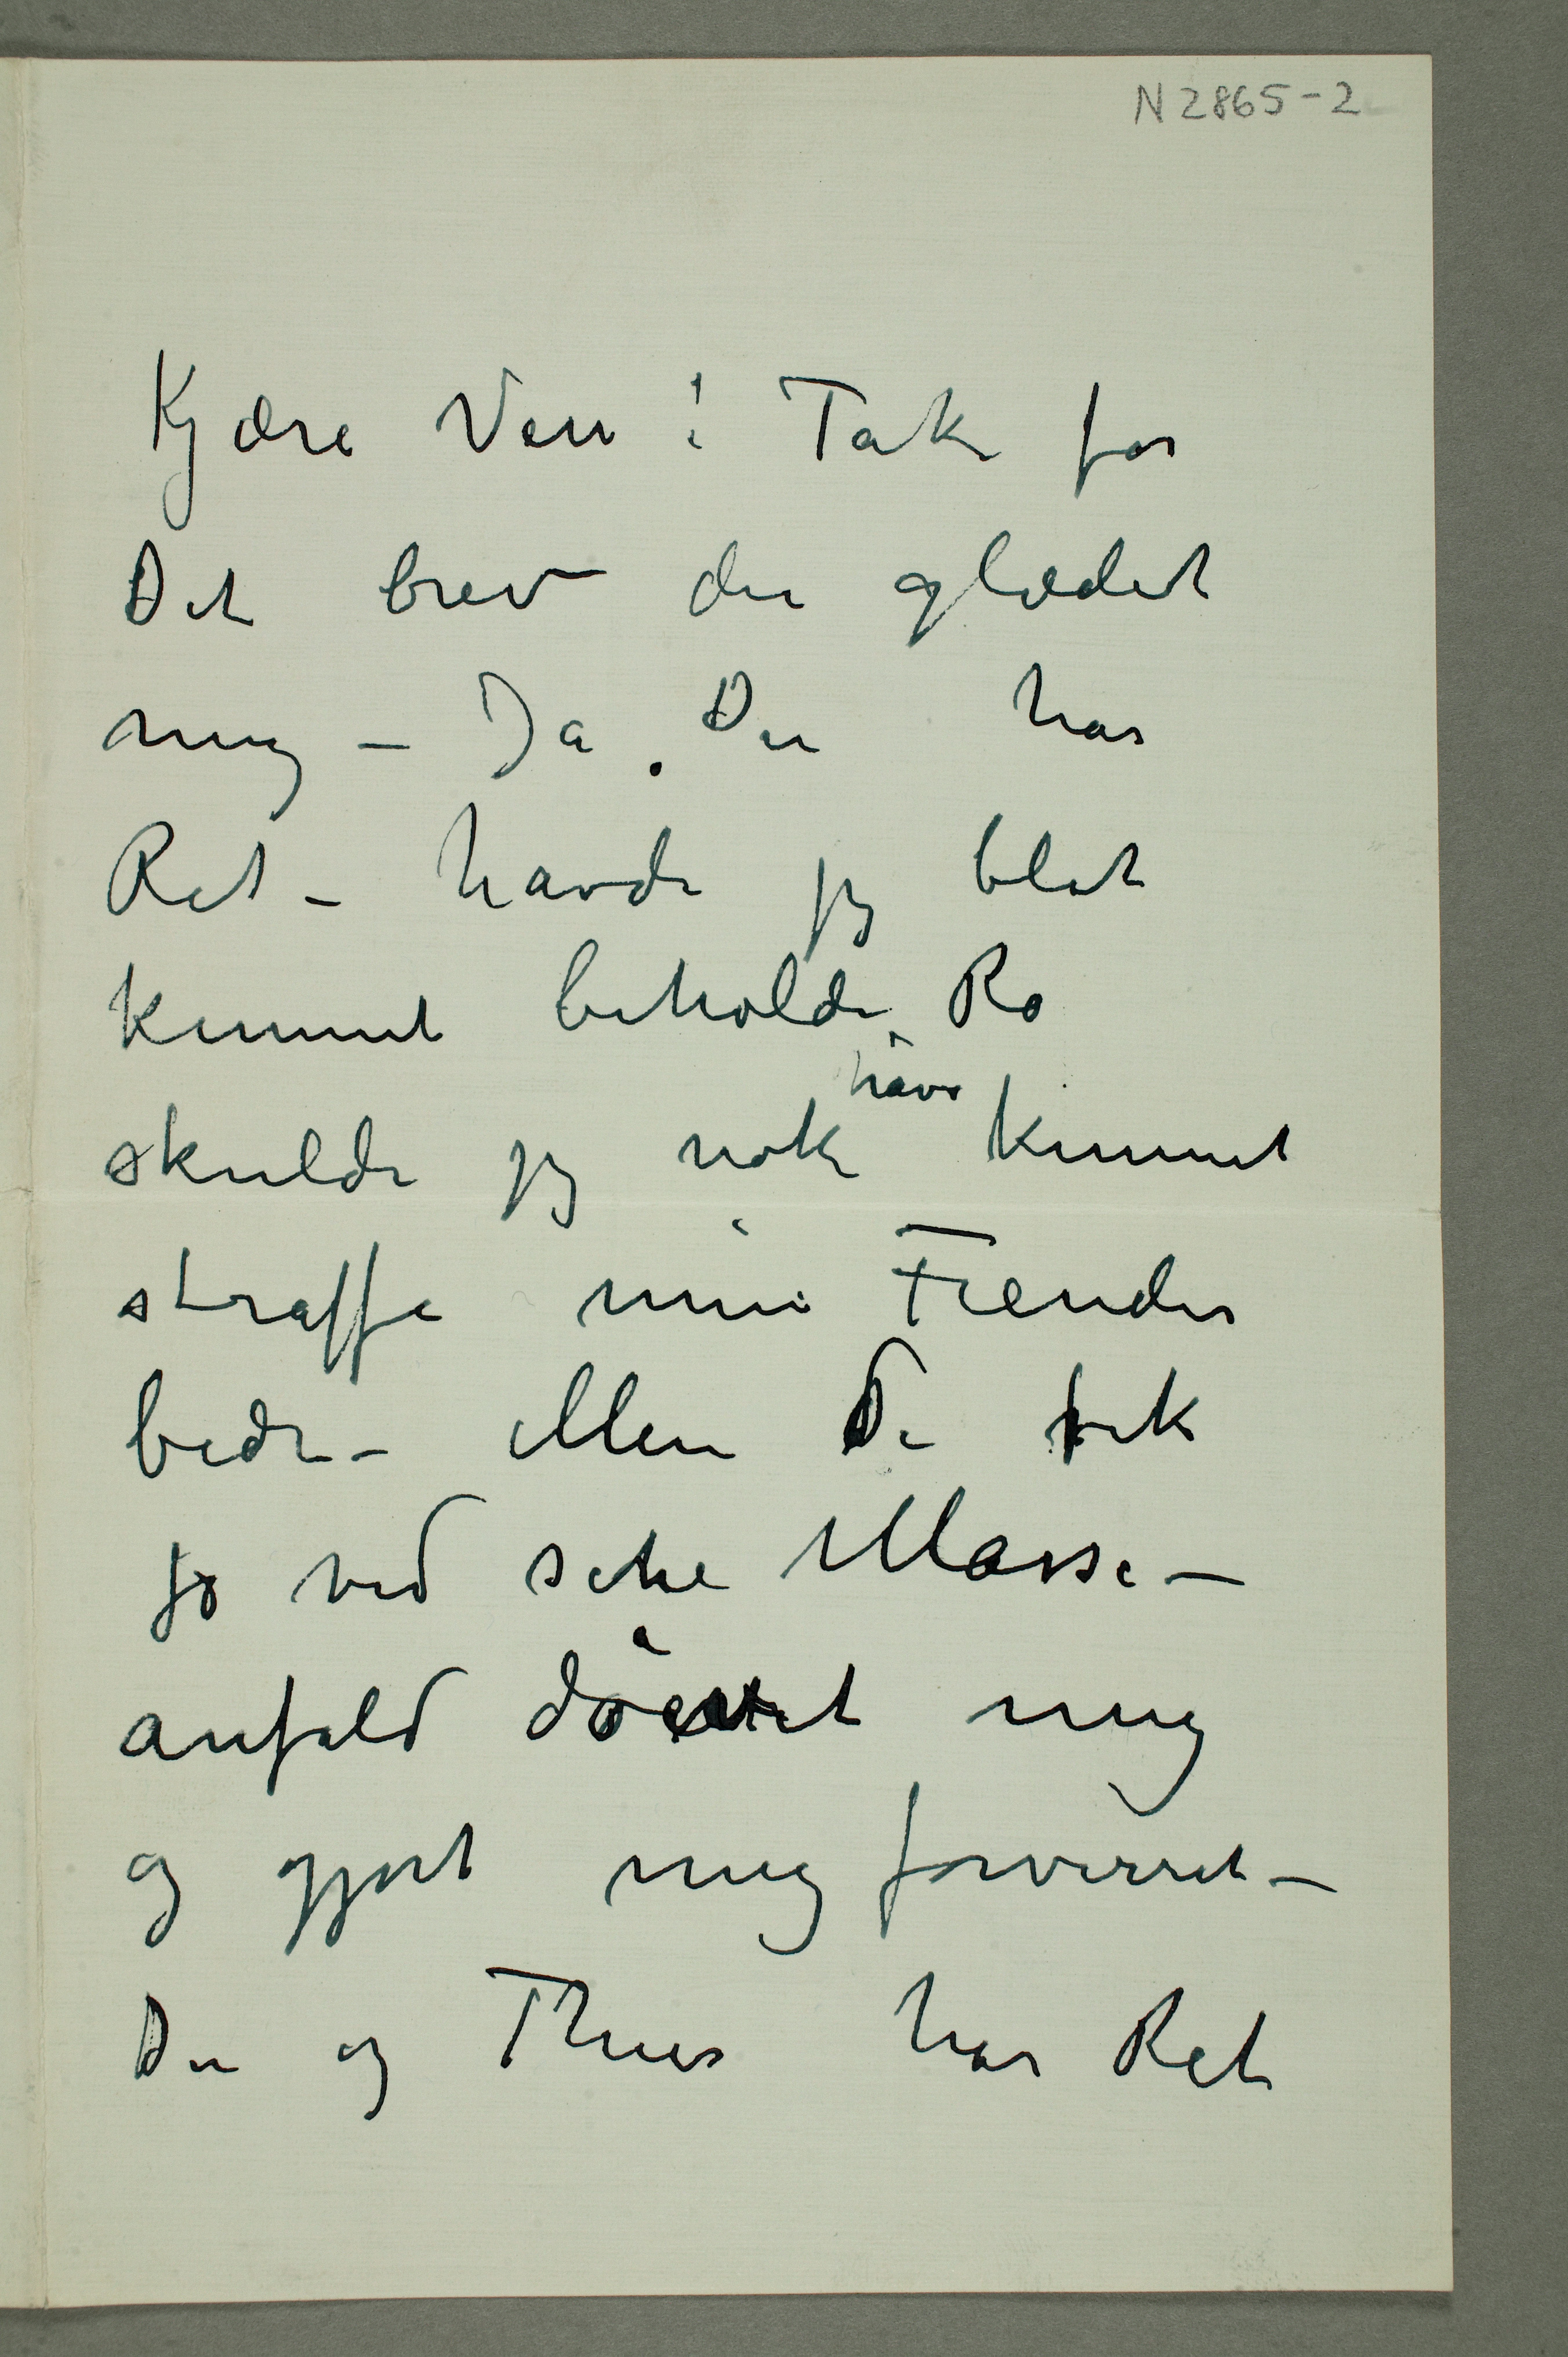 N 2865-2
Kjære Ven! Tak for
Dit brev der glædet
mig – Ja, Du har
Ret – havde jeg blot
kunnet beholde Ro
skulde jeg nok have kunnet
straffe mine Fiender
bedre – Men De fik
jo ved sine Masse-
anfald døvet mig
og gjort mig forvirret –
Du og Thiis har Ret